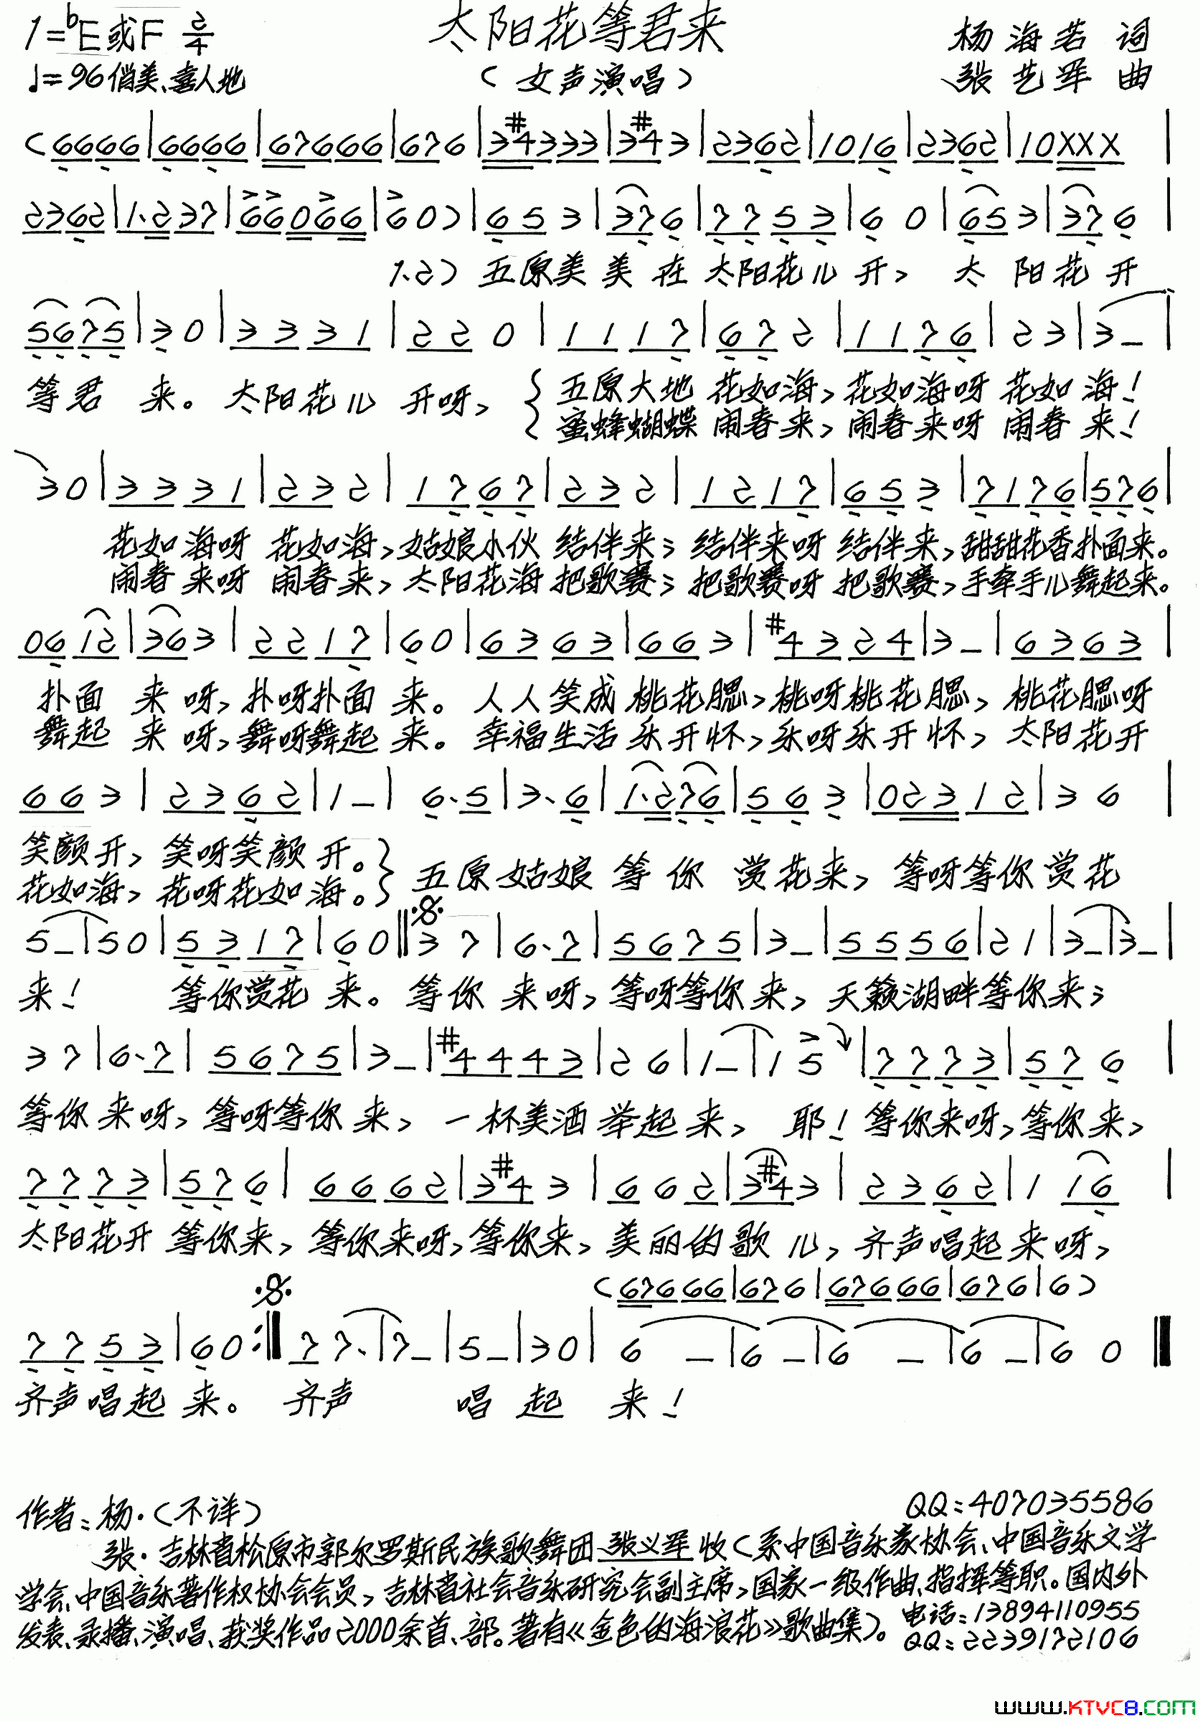 1=♭E或F 2/4
太阳花等君来
♩=96 俏美、喜人地
（女声演唱）
杨海若 词
张艺军 曲
(6666|6666|67666|676|3#4333|3#43|2362|1016|2362|10XXX|
2362|1.237|66066|60)|653|376|7753|60|653|376|
1.2) 五原美美在太阳花儿开, 太阳花开
5675|30|3331|220|1117|672|1176|23|3-|
等君来。太阳花儿开呀, { 五原大地花如海, 花如海呀花如海!
{ 蜜蜂蝴蝶闹春来, 闹春来呀闹春来!
30|3331|232|1767|232|1217|653|7176|576|
花如海呀花如海, 姑娘小伙结伴来; 结伴来呀结伴来, 甜甜花香扑面来。
闹春来呀闹春来, 太阳花海把歌赛; 把歌赛呀把歌赛, 手牵手儿舞起来。
0612|363|2217|60|6363|663|#4324|3-|6363|
扑面来呀, 扑呀扑面来。人人笑成桃花腮, 桃呀桃花腮, 桃花腮呀
舞起来呀, 舞呀舞起来。幸福生活乐开怀, 乐呀乐开怀, 太阳花开
663|2362|1-|6.5|3.6|1.276|563|02312|36|
笑颜开, 笑呀笑颜开。} 五原姑娘等你赏花来, 等呀等你赏花
花如海, 花呀花如海。}
5-|50|5317|60‖37|6.7|5675|3-|5556|21|3-|3-|
来! 等你赏花来。等你来呀, 等呀等你来, 天籁湖畔等你来;
37|6.7|5675|3-|#4443|26|1-|15|7773|576|
等你来呀, 等呀等你来, 一杯美酒举起来, 耶! 等你来呀, 等你来,
7773|576|6662|3#43|662|3#43|2362|116|
太阳花开等你来, 等你来呀, 等你来, 美丽的歌儿, 齐声唱起来呀,
(67666|676|67666|676|6)
7753|60:‖77.|7-|5-|30|6-|6-|6-|6-|60‖
齐声唱起来。齐声唱起来!
作者: 杨·(不详)
QQ:407035586
张·吉林省松原市郭尔罗斯民族歌舞团张义军收(系中国音乐家协会、中国音乐文学
学会、中国音乐著作权协会会员, 吉林省社会音乐研究会副主席, 国家一级作曲、指挥等职。国内外
发表、录播、演唱、获奖作品2000余首、部。著有《金色的海浪花》歌曲集)。电话:13894110955
QQ:2239172106
www.KTVC8.com